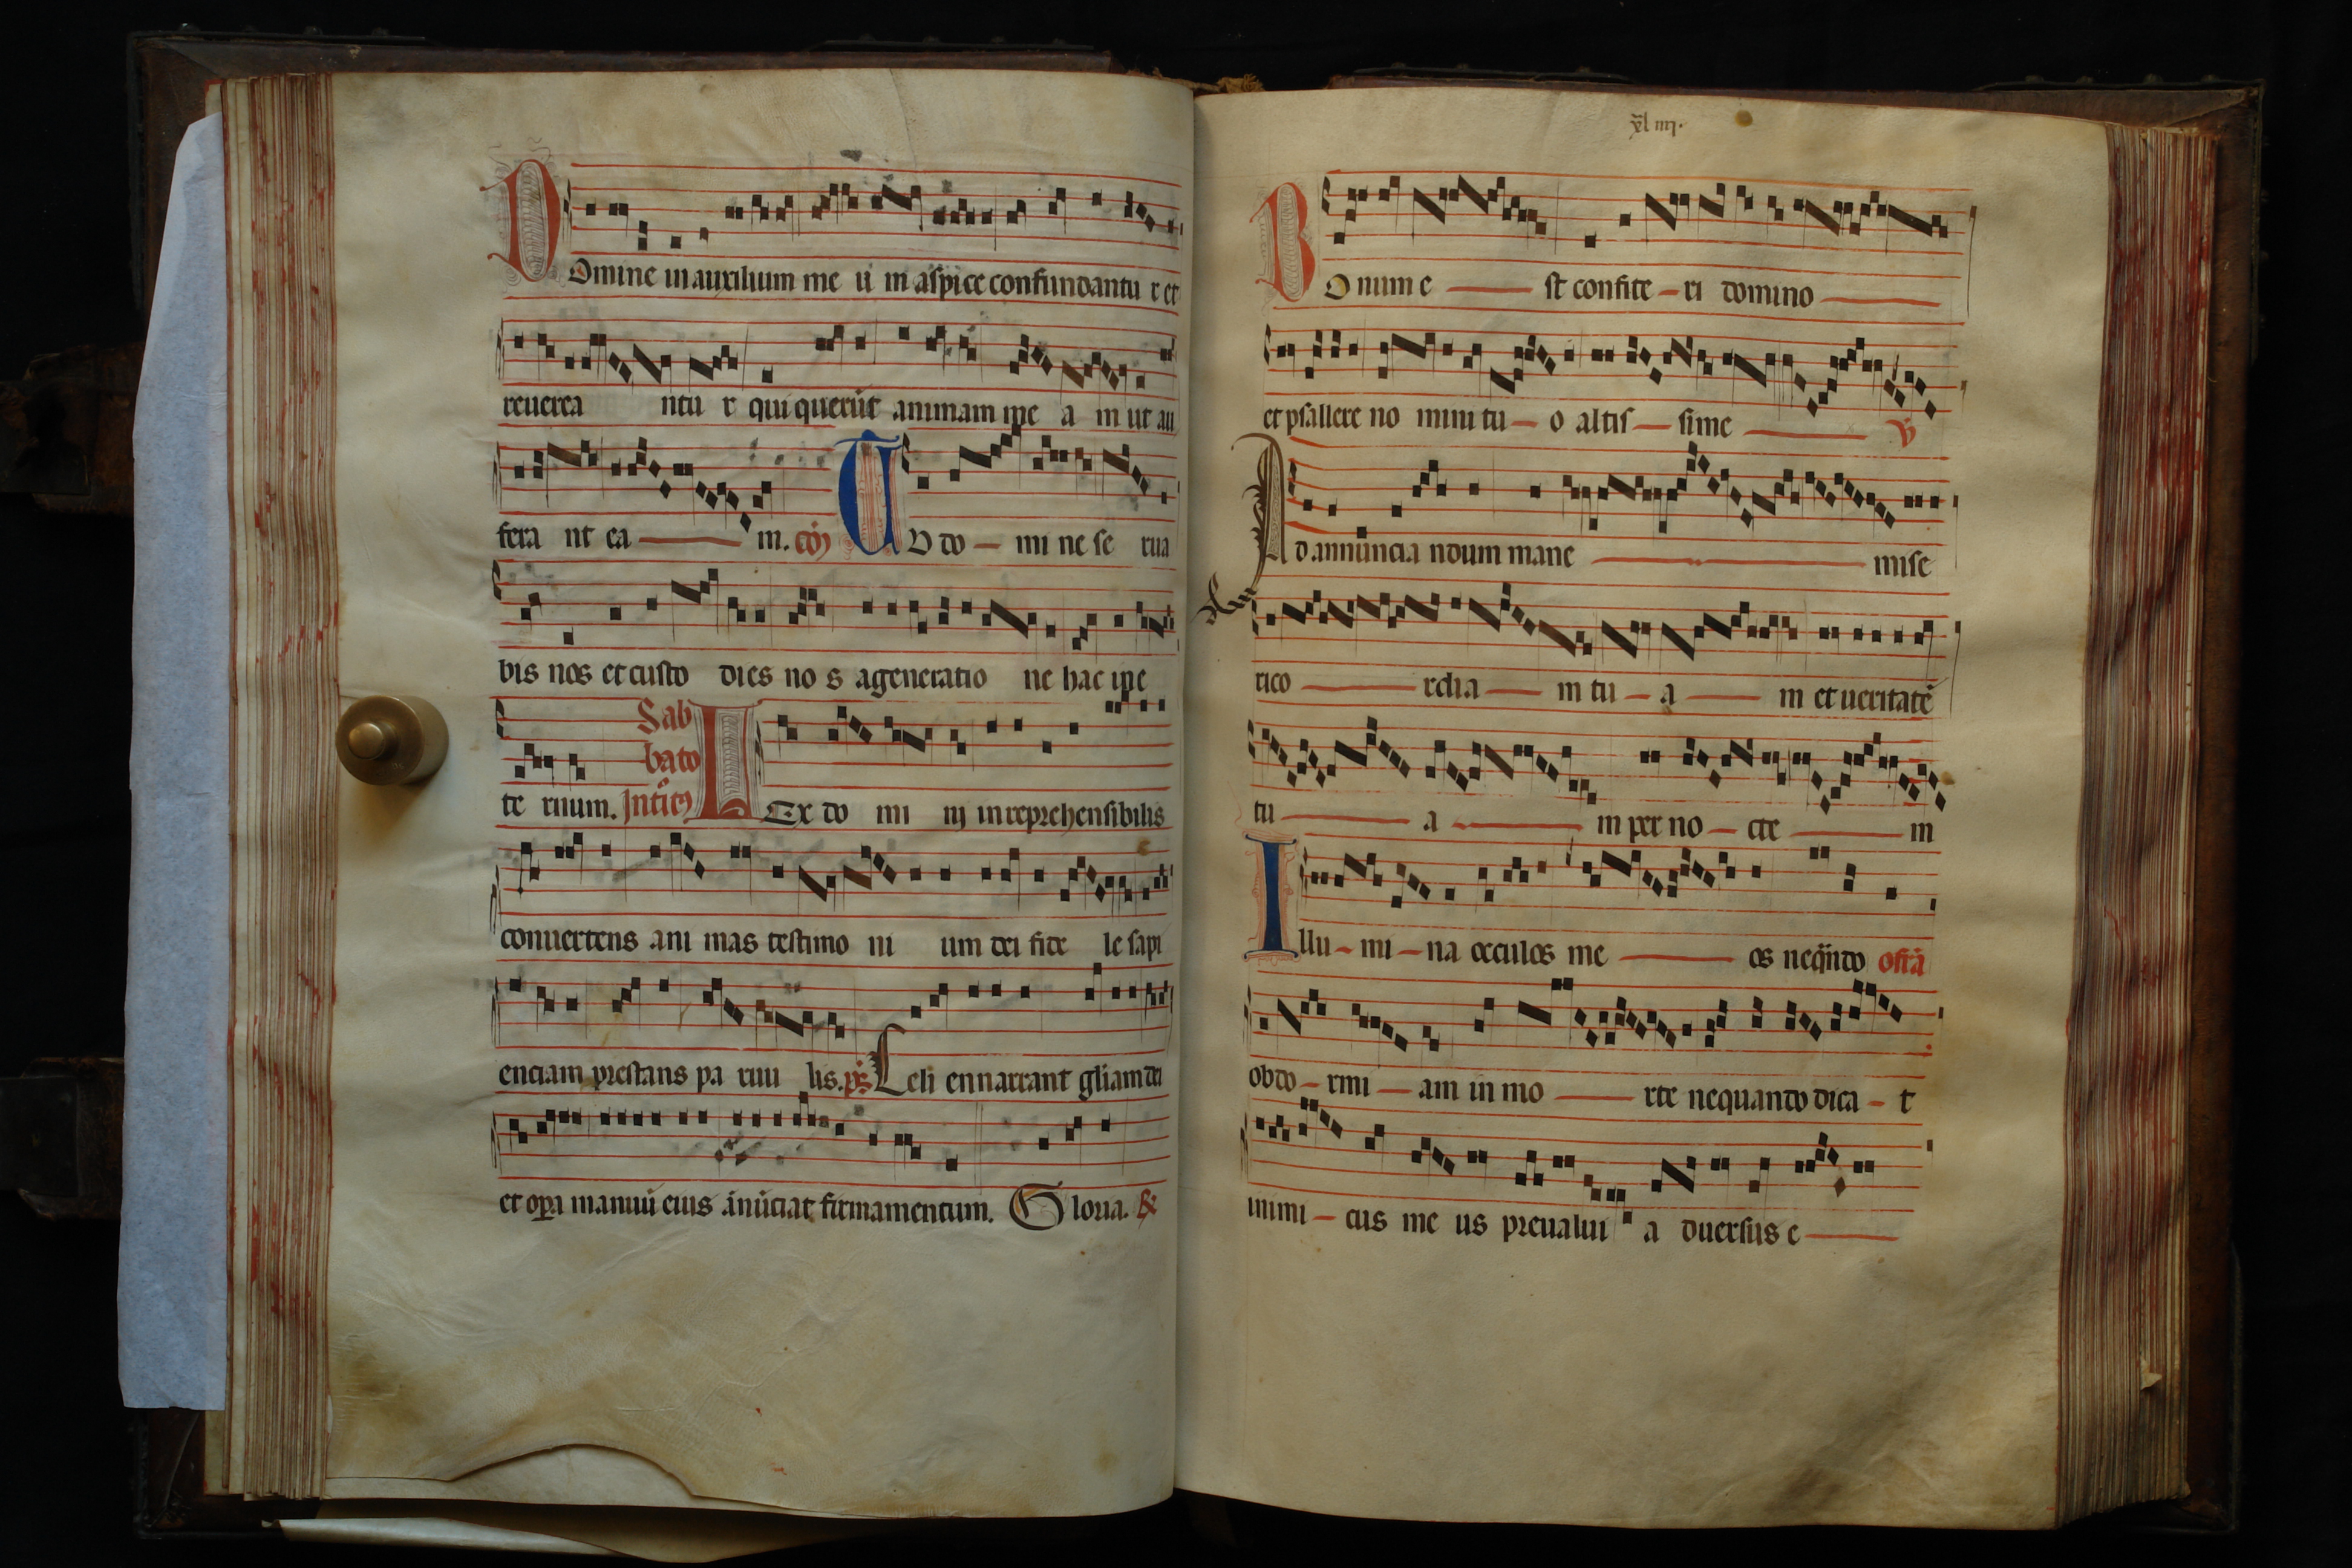 Domine in auxilium me u in aspice confundantu r et
reuerea ntu r qui querūt animam me a m ut au
fera nt ea m. cō TV do mi ne se rua
bis nos et custo dies no s a generatio ne hac in e
te rnum. Sab bato Introit LEx do mi nj inreprehensibilis
conuertens ani mas testimo ni um dei fide le sapi
enciam prestans pa ruu lis. ps. Celi ennarrant gliam dei
et opa manuū eius ānūciat firmamentum. Gloria. R
xl iiij.
Bonum e st confite ri domino
et psallere no mini tu o altis sime V
Ad annuncia ndum mane mise
rico rdia m tu a m et ueritatē
tu a m per no cte m
Illu mi na occulos me os neqndo offrā
obdo rmi am in mo rte nequando dica t
inimi cus me us preualui a duersus e